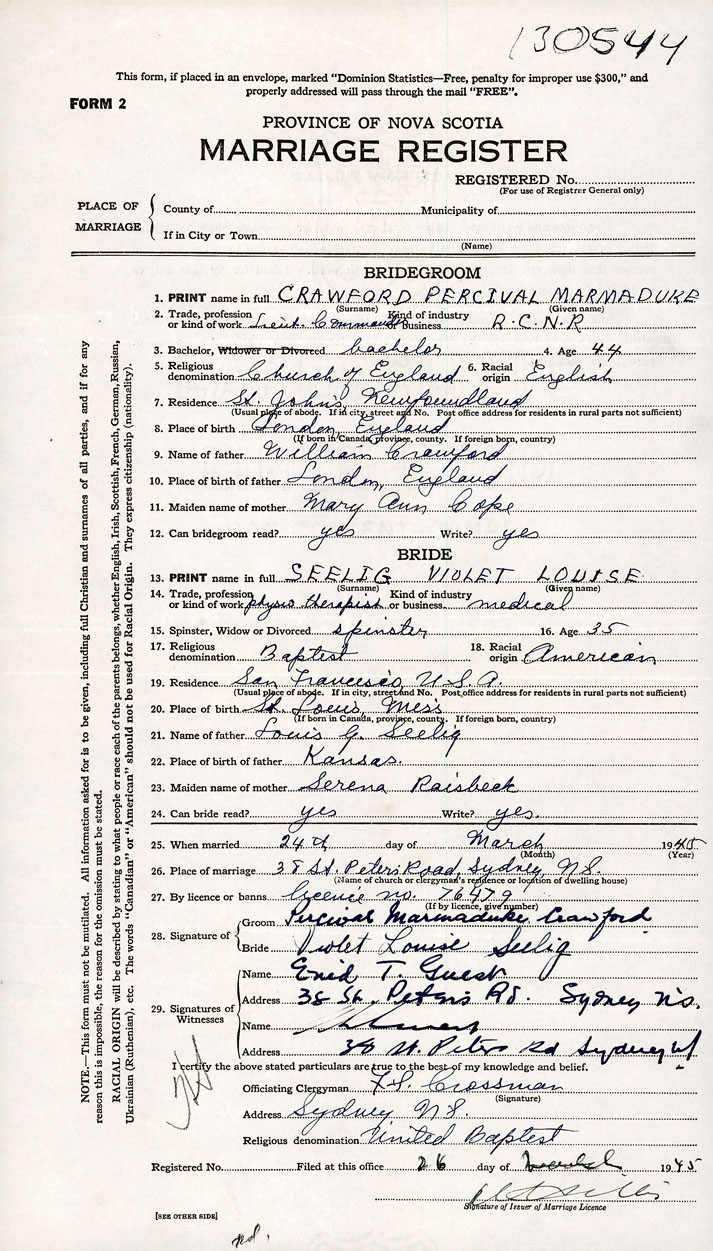 130544
This form, if placed in an envelope, marked “Dominion Statistics—Free, penalty for improper use $300,” and
properly addressed will pass through the mail “FREE”.
FORM 2
PROVINCE OF NOVA SCOTIA
MARRIAGE REGISTER
REGISTERED No.
(For use of Registrer General only)
PLACE OF MARRIAGE
County of Municipality of
If in City or Town
(Name)
BRIDEGROOM
1. PRINT name in full CRAWFORD PERCIVAL MARMADUKE
(Surname) (Given name)
2. Trade, profession or kind of work Lieut. Commander Kind of industry or business R.C.N.R
3. Bachelor, Widower or Divorced bachelor 4. Age 44
5. Religious denomination Church of England 6. Racial origin English
7. Residence St. John's, Newfoundland
(Usual place of abode. If in city, street and No. Post office address for residents in rural parts not sufficient)
8. Place of birth London, England
(If born in Canada, province, county. If foreign born, country)
9. Name of father William Crawford
10. Place of birth of father London, England
11. Maiden name of mother Mary Ann Cope
12. Can bridegroom read? yes Write? yes
BRIDE
13. PRINT name in full SEELIG VIOLET LOUISE
(Surname) (Given name)
14. Trade, profession or kind of work physio therapist Kind of industry or business medical
15. Spinster, Widow or Divorced spinster 16. Age 35
17. Religious denomination Baptist 18. Racial origin American
19. Residence San Francisco, U.S.A.
(Usual place of abode. If in city, street and No. Post office address for residents in rural parts not sufficient)
20. Place of birth St. Louis, Miss
(If born in Canada, province, county. If foreign born, country)
21. Name of father Louis G. Seelig
22. Place of birth of father Kansas.
23. Maiden name of mother Serena Raisbeck
24. Can bride read? yes Write? yes.
25. When married 24th day of March 1945
(Month) (Year)
26. Place of marriage 38 St. Peters Road, Sydney, N.S.
(Name of church or clergyman's residence or location of dwelling house)
27. By licence or banns licence no. 76479
(If by licence, give number)
28. Signature of Groom Percival Marmaduke Crawford
Bride Violet Louise Seelig
29. Signatures of Witnesses
Name Enid T. Guest
Address 38 St. Peters Rd. Sydney N.S.
Name
Address 38 St. Peters Rd Sydney
I certify the above stated particulars are true to the best of my knowledge and belief.
Officiating Clergyman Crossman
(Signature)
Address Sydney N.S.
Religious denomination United Baptist
Registered No. Filed at this office 26 day of March 1945
Signature of Issuer of Marriage Licence
[SEE OTHER SIDE]
NOTE.—This form must not be mutilated. All information asked for is to be given, including full Christian and surnames of all parties, and if for any
reason this is impossible, the reason for the omission must be stated.
RACIAL ORIGIN will be described by stating to what people or race each of the parents belongs, whether English, Irish, Scottish, French, German, Russian,
Ukrainian (Ruthenian), etc. The words “Canadian” or “American” should not be used for Racial Origin. They express citizenship (nationality).